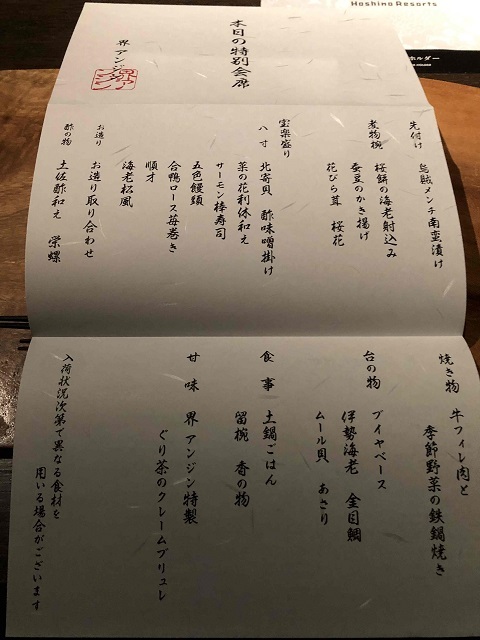 Hoshino Resorts
ホルダー
本日の特別会席
界 アンジン
先付け 烏賊メンチ南蛮漬け
煮物椀 桜餅の海老射込み
蚕豆のかき揚げ
花びら茸 桜花
宝楽盛り
八寸 北寄貝 酢味噌掛け
菜の花利休和え
サーモン棒寿司
五色饅頭
合鴨ロース苺巻き
順才
海老松風
お造り お造り取り合わせ
酢の物 土佐酢和え 栄螺
焼き物 牛フィレ肉と
季節野菜の鉄鍋焼き
台の物 ブイヤベース
伊勢海老 金目鯛
ムール貝 あさり
食事 土鍋ごはん
留椀 香の物
甘味 界 アンジン特製
ぐり茶のクレームブリュレ
入荷状況次第で異なる食材を
用いる場合がございます